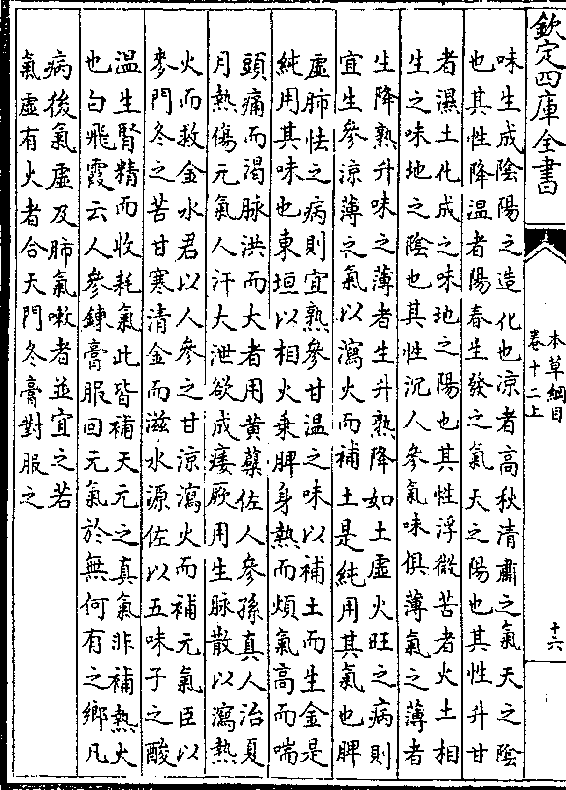 欽定四庫全書
本草綱目
卷十二上
十六
味生成陰陽之造化也涼者高秋清肅之氣天之陰
也其性降温者陽春生發之氣天之陽也其性升甘
者濕土化成之味地之陽也其性浮微苦者火土相
生之味地之陰也其性沉人參氣味俱薄氣之薄者
生降熟升味之薄者生升熟降如土虛火旺之病則
宜生參涼薄之氣以瀉火而補土是純用其氣也脾
虛肺怯之病則宜熟參甘温之味以補土而生金是
純用其味也東垣以相火乘脾身熱而煩氣高而喘
頭痛而渴脉洪而大者用黃蘗佐人參孫真人治夏
月熱傷元氣人汗大泄欲成痿厥用生脉散以瀉熱
火而救金水君以人參之甘涼瀉火而補元氣臣以
麥門冬之苦甘寒清金而滋水源佐以五味子之酸
温生腎精而收耗氣此皆補天元之真氣非補熱火
也白飛霞云人參鍊膏服回元氣於無何有之鄉凡
病後氣虛及肺氣嗽者並宜之若
氣虛有火者合天門冬膏對服之